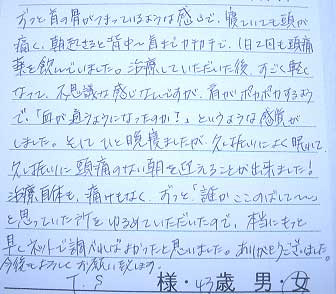 ずっと首の骨がつまっているような感じで、寝ていても頭が
痛く、朝起きると背中〜首までカチカチで、1日2回も頭痛
薬を飲んでいました。治療していただいた後、すごく軽く
なって、不思議な感じなんですが、肩がポカポカするよう
で、「血が通うようになったのか?」というような感覚が
しました。そしてひと晩寝ましたが、久し振りによく眠れて、
久し振りに頭痛のない朝を迎えることが出来ました!
治療自体も、痛けもなく、ずっと「誰かここのばして〜〜」
と思っていた所をゆるめていただいたので、本当にもっと
早くネットで調べればよかったと思いました。ありがとうございました。
今後もよろしくお願い致します。
T.S 様・43歳 男・女